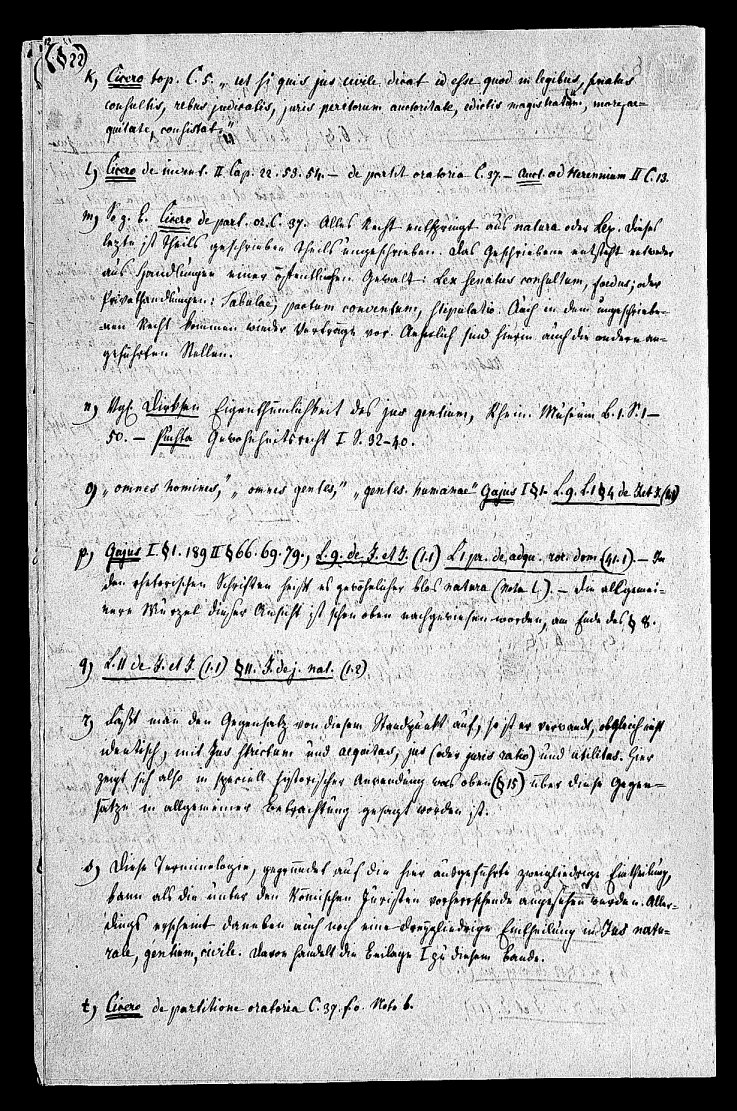 (§22)
k) Cicero top. C. 5. „ut si quis jus civile dicat id esse quod in legibus, senatus
consultis, rebus judicatis, juris peritorum auctoritate, edictis magistratuum, more, ae-
quitate, consistat."
l) Cicero de invent. II Cap. 22. 53. 54. – de partit oratoria C. 37. – Auct. ad Herennium II C. 13.
m) So z. B. Cicero de part. or. C. 37. Alles Recht entspringt aus natura oder Lex. Dieses
letzte ist theils geschrieben theils ungeschrieben. Das Geschriebene entsteht entweder
aus Handlungen einer öffentlichen Gewalt: Lex senatus consultum, foedus; oder
Privathandlungen: Tabulae, pactum conventum, stipulatio. Auch in dem ungeschriebe-
nen Recht kommen wieder Verträge vor. Aehnlich sind hierin auch die andern an-
geführten Stellen.
n) Vgl. Dirksen Eigenthümlichkeit des jus gentium, Rhein. Museum B. 1. S. 1–
50. – Puchta Gewohnheitsrecht I S. 32–40.
o) „omnes homines," „omnes gentes," „gentes humanae" Gajus I §1. L. 9. L. 1 §4 de J. et J. (1.1)
p) Gajus I. §1. 189 II §66. 69. 79., L. 9. de J. et J. (1.1) L. 1 pr. de adqu. rer. dom. (41.1). – In
den rhetorischen Schriften heißt es gewöhnlicher blos natura (Note l.). – Die allgemei-
nere Wurzel dieser Ansicht ist schon oben nachgewiesen worden, am Ende des § 8.
q) L. 11 de J. et J. (1.1) §11. J. de j. nat. (1.2)
r) Faßt man den Gegensatz von diesem Standpunkt auf, so ist er verwandt, obgleich nicht
identisch, mit Jus strictum und aequitas, jus (oder juris ratio) und utilitas. Hier
zeigt sich also in speciell historischer Anwendung was oben (§15) über diese Gegen-
sätze in allgemeiner Betrachtung gesagt worden ist.
s) Diese Terminologie, gegründet auf die hier ausgeführte zweigliedrige Eintheilung,
kann als die unter den Römischen Juristen vorherrschende angesehen werden. Aller-
dings erscheint daneben auch noch eine dreygliedrige Eintheilung in Jus natu-
rale, gentium, civile. Davon handelt die Beilage I zu diesem Bande.
t) Cicero de partitione oratoria C. 37. s. o. Note b.